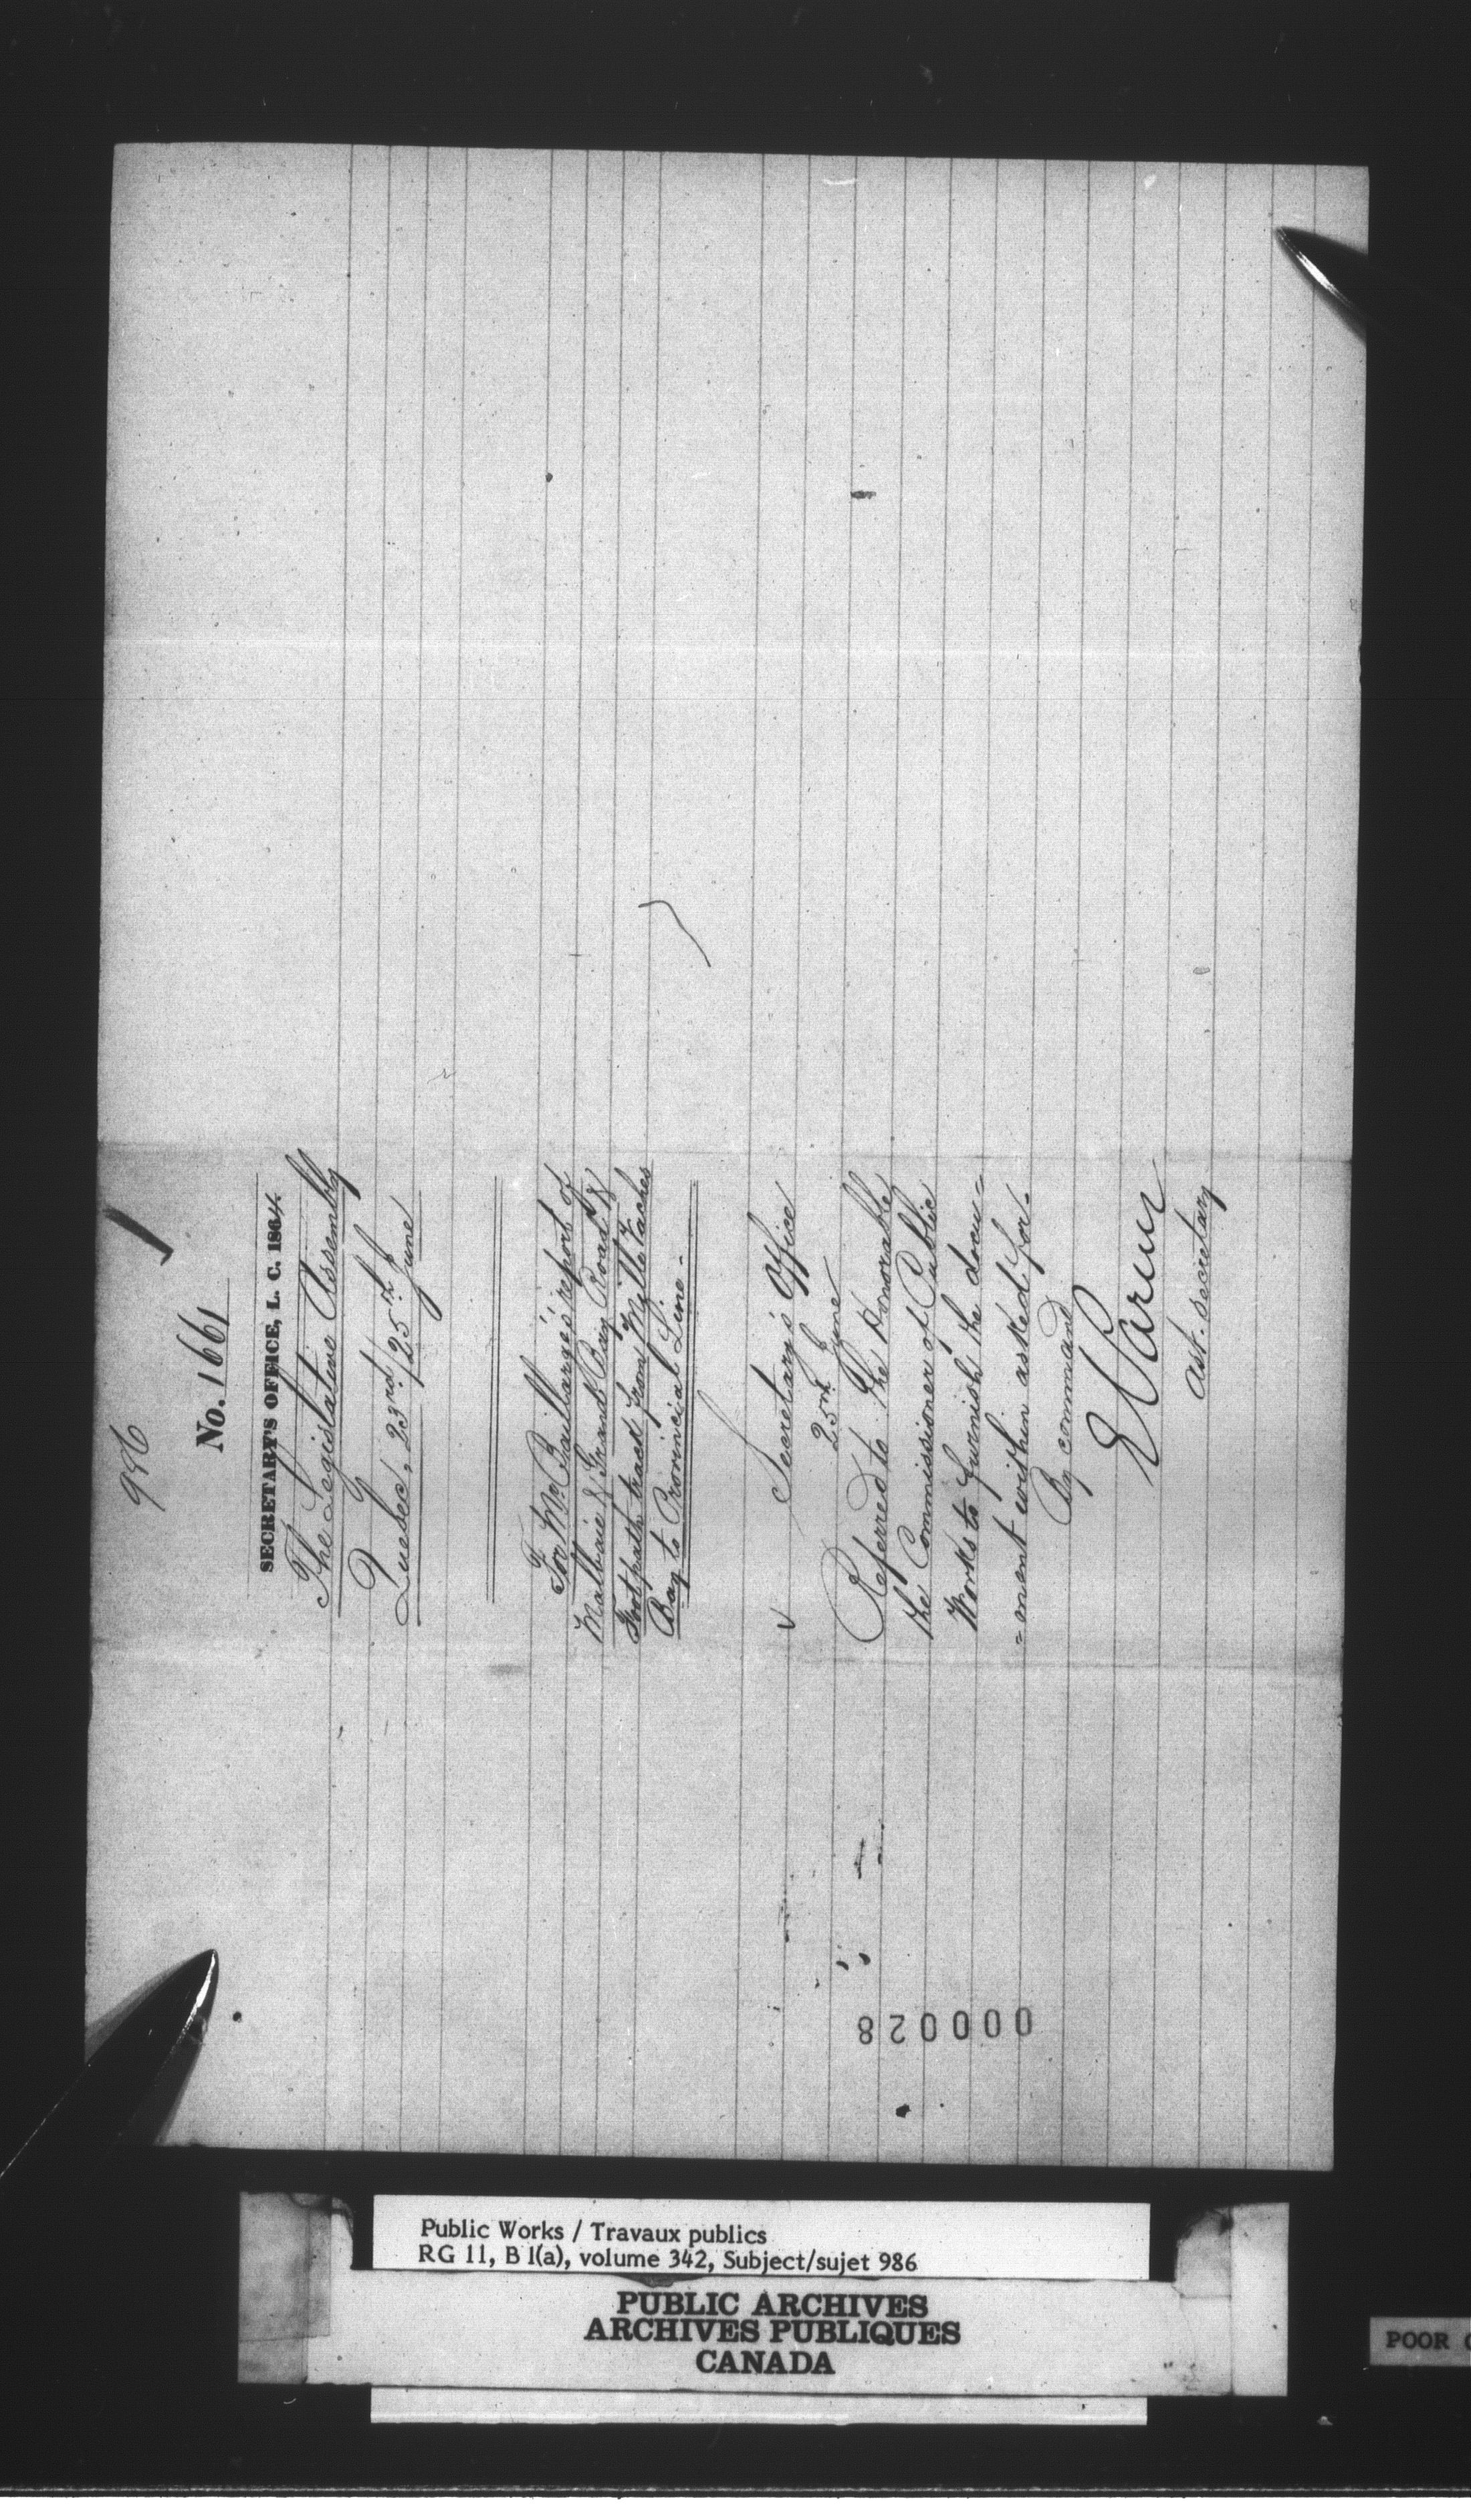 986
No. 1661
SECRETARY'S OFFICE, L. C. 1864.
The Legislative Assembly
Quebec, 23rd/25th June
For Mr. Baillargé's report of
Malbaie & Grand Bay Road &
Footpath track from Mille Vaches
Bay to Provincial Line.
Secretary's Office
25th June
Referred to the Honorable
the Commissioner of Public
Works to furnish the docu=
=ment within asked for.
By command
E Parent
Ast. Secretary
000028
Public Works / Travaux publics
RG 11, B 1(a), volume 342, Subject/sujet 986
PUBLIC ARCHIVES
ARCHIVES PUBLIQUES
CANADA
POOR